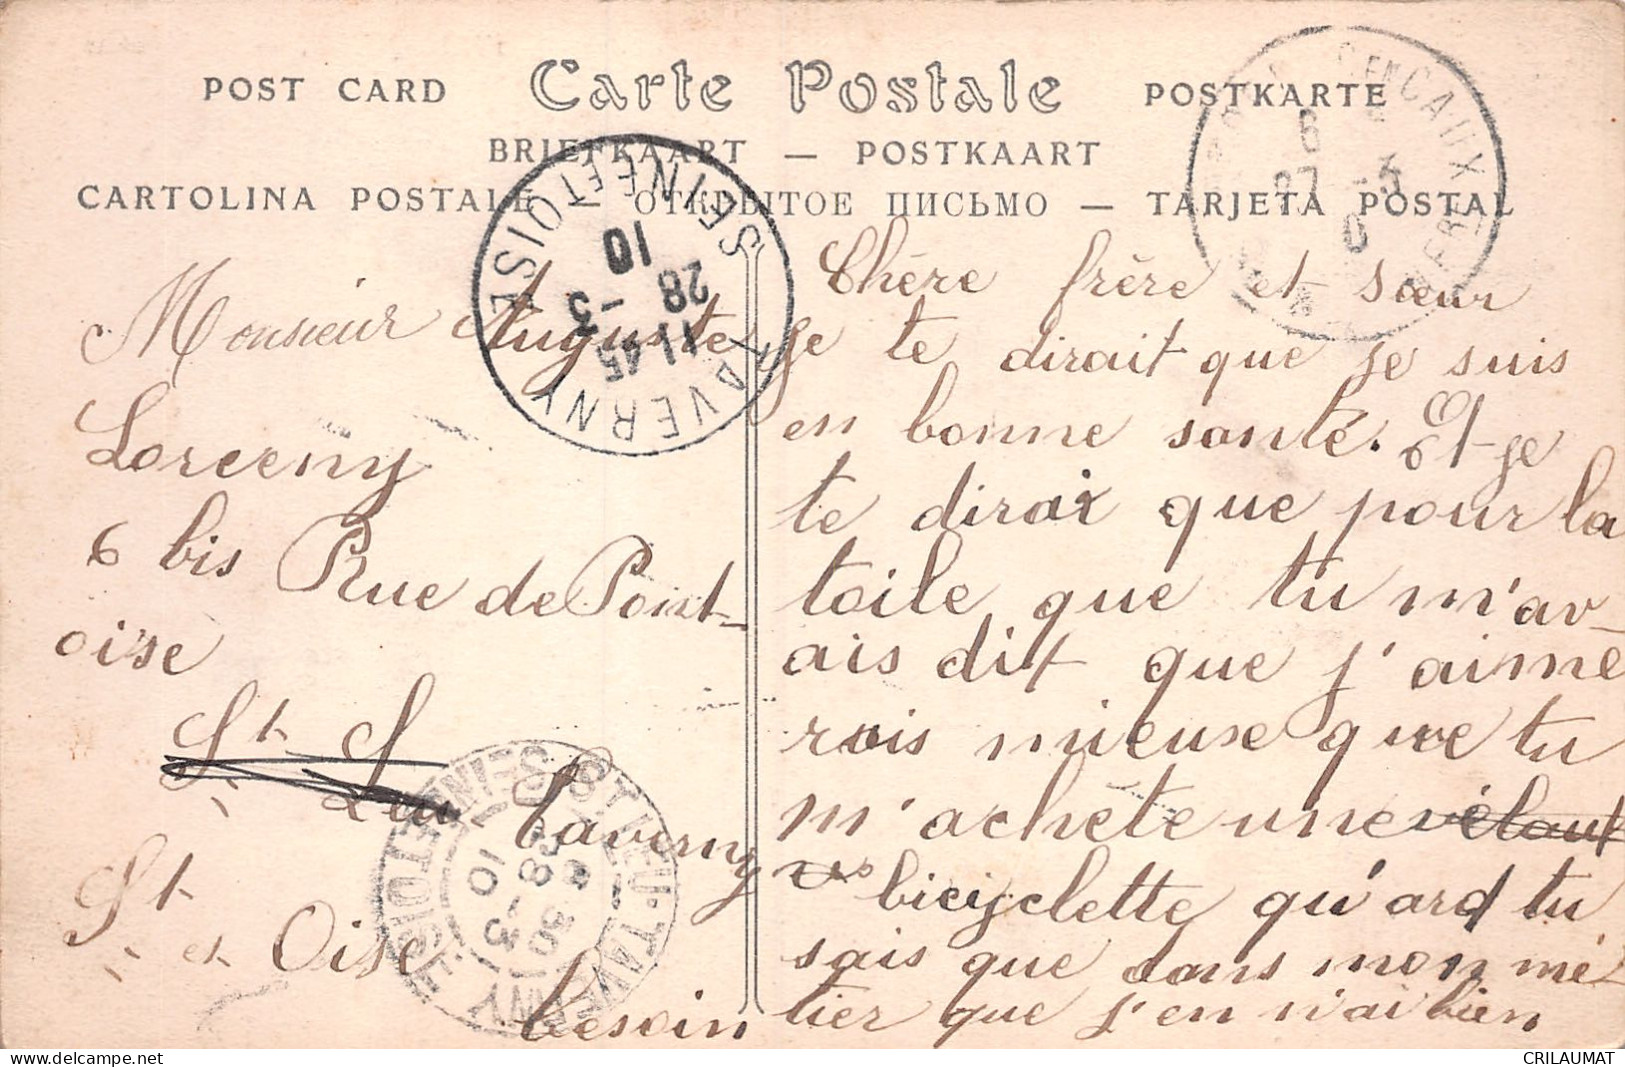 POST CARD Carte Postale POSTKARTE
BRIEFKAART — POSTKAART
CARTOLINA POSTALE — ОТКРЫТОЕ ПИСЬМО — TARJETA POSTAL
EN CAUX
6
27 -3
TAVERNY
SEINE ET OISE
11 45
28 -3
10
Monsieur Auguste
Lorceny
6 bis Rue de Point-
oise
St L
Leu Taverny
St et Oise
ST LEU-TAVERNY
SEINE
8 30
28 -3
10
Chère frère et sœur
je te dirait que je suis
en bonne santé. Et je
te dirai que pour la
toile que tu m'av-
ais dit que j'aime
rais mieuse que tu
m'achète une vélout
bicyclette qu'ard tu
sais que dans mon mé
tier que j'en n'ai bien
besoin
CRILAUMAT